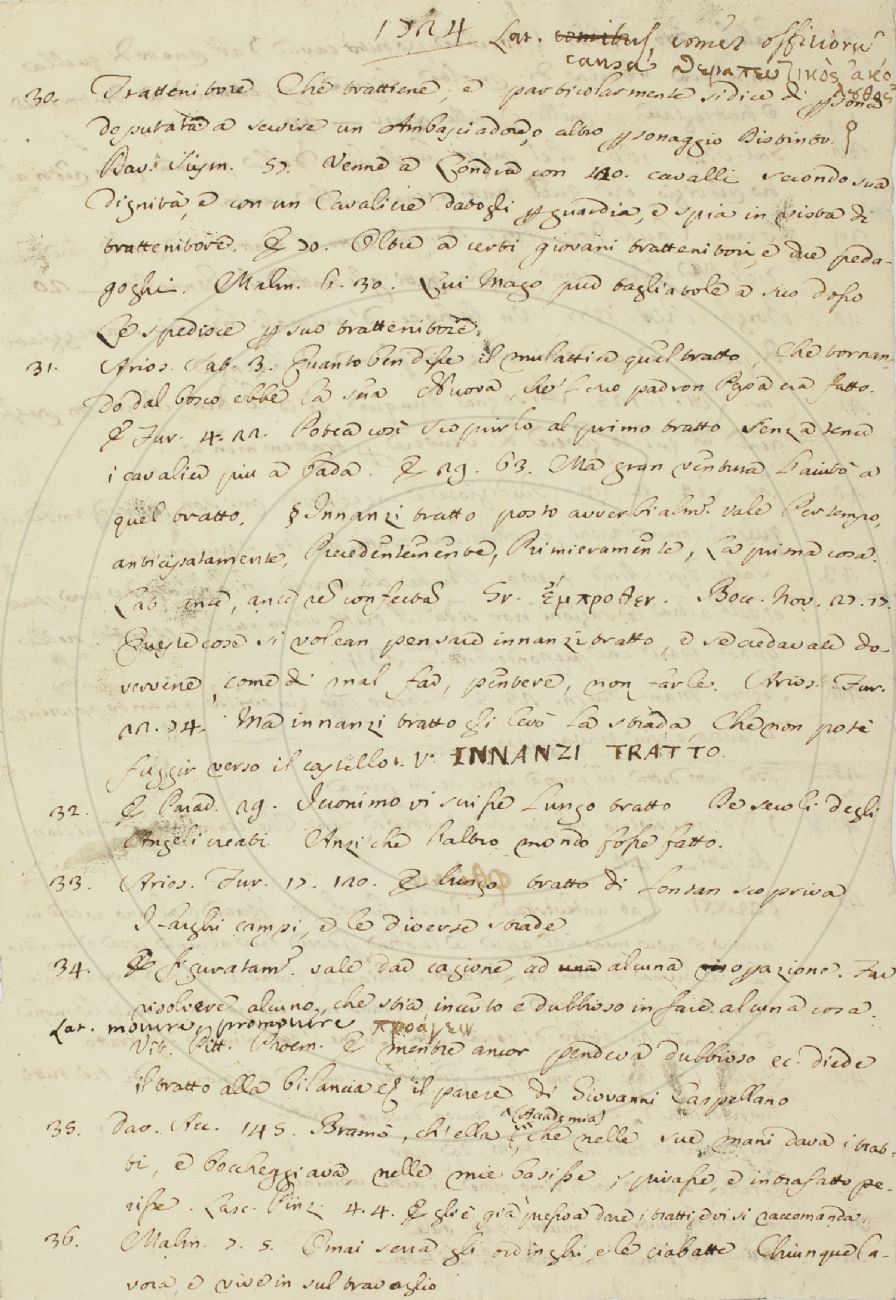 1724 Lat. comitus, comes officioru
causa θεραπευτικὸς ἀκό
λουθος
30. Trattenitore Che trattiene, e particolarmente si dice di psona
deputata a servire un Ambasciadore, o altro psonaggio Distinto.
Dav. Scism. 57. Venne a Londra con 40. cavalli secondo sua
dignità, e con un Cavaliere datogli p guardia, e spia in vista di
trattenitore. E 70. Oltre a certi giovani trattenitori, e due peda-
goghi. Malm. 6. 30. Qui Mago può tagliatole a suo dosso
Le spedisce p suo trattenitore.
31. Arios. Sat. 3. Quanto ben disse il mulattier quel tratto, Che tornan-
do dal bosco ebbe la sua Nuova, che 'l suo padron Papa era fatto.
E Fur. 4. 22. Potea così scoprirlo al primo tratto Senza tener
i cavalier più a bada. E 29. 63. Ma gran ventura l'aiutò a
quel tratto. § Innanzi tratto posto avverbialm. vale Per tempo,
anticipatamente, Precedentemente, Primieramente, La prima cosa.
Lat. ante, ante re confecta Gr. ἔμπροθεν. Bocc. Nov. 27. 17.
Queste cose si volean pensare innanzi tratto, e se credavate do-
vervene, come di mal far, pentere, non farle. Arios. Fur.
22. 74. Ma innanzi tratto gli levò la strada, Che non potè
fuggir verso il castello. V. INNANZI TRATTO.
32. E Parad. 29. Jeronimo vi scrisse Lungo tratto De secoli degli
Angeli creati Anzi che l'altro mondo fosse fatto.
33. Arios. Fur. 17. 120. E lungo tratto di lontan scopriva
I larghi campi, e le diverse strade
34. E figuratam. vale dar cagione, ad alcuna opazione. Far
risolvere alcuno, che stia incerto e dubbioso in fare alcuna cosa.
Lat. movere, promovere προάγειν
Vit. Pitt. Proem. E mentre ancor pendeva dubbioso ec. diede
il tratto alla bilancia il parere di Giovanni Cappellano
35. Dav. Acc. 145. Bramò, ch'ella (Accademia)
che nelle sue mani dava i trat-
ti, e boccheggiava, nelle mie basisse, spirasse, e intrafatto pe-
risse. Lasc. Pinz 4. 4. Egli è già presso a dare i tratti, e vi si raccomanda.
36. Malm. 7. 5. Omai serra gli ordinghi, e le ciabatte Chiunque la-
vora, e vive in sul travaglio